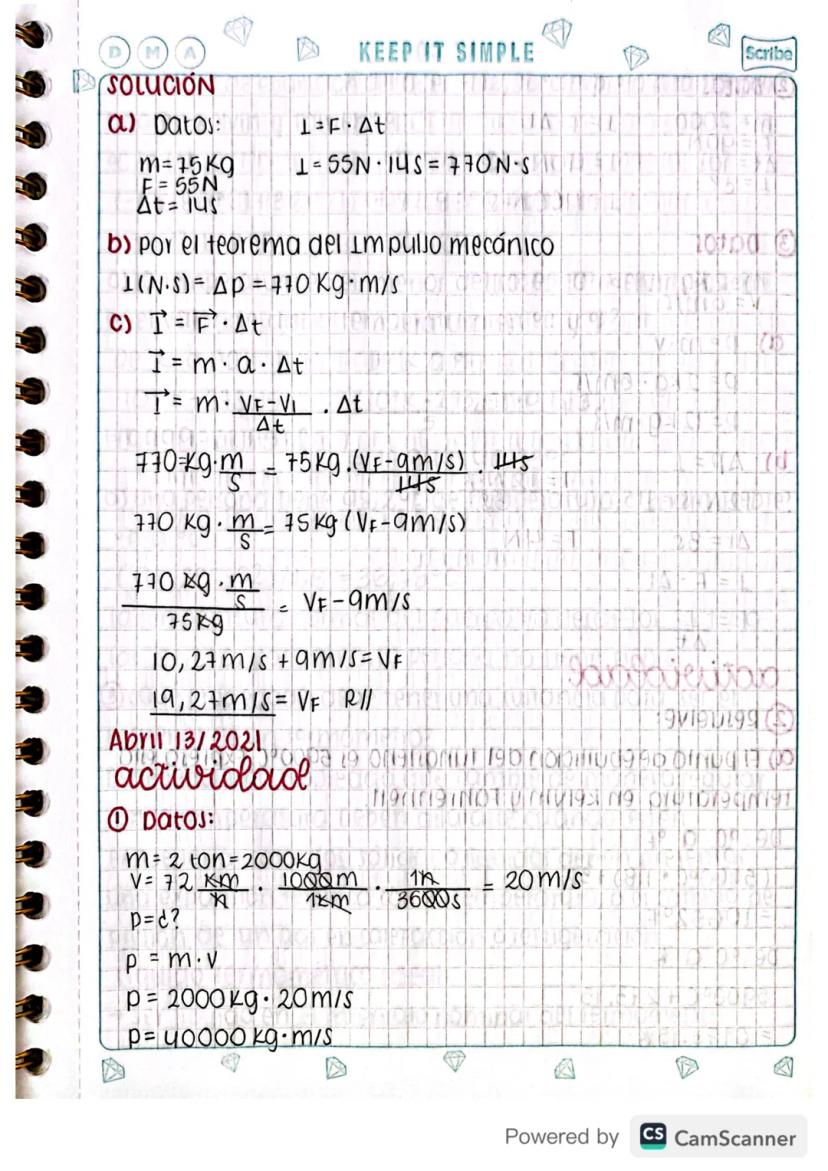 D M A KEEP IT SIMPLE Scribe
SOLUCIÓN
a) Datos: I = F · Δt
m = 75 Kg I = 55N · 14s = 770 N·s
F = 55N
Δt = 14s
b) por el teorema del Impulso mecánico
I(N·s) = Δp = 770 Kg·m/s
c) I⃗ = F⃗ · Δt
I⃗ = m · a · Δt
I⃗ = m · VF-VI / Δt · Δt
770 Kg · m/s = 75 Kg · (VF-9m/s) / 14s · 14s
770 Kg · m/s = 75 Kg (VF-9m/s)
770 Kg · m/s / 75 Kg = VF-9m/s
10,27 m/s + 9m/s = VF
19,27 m/s = VF R//
Abril 13/2021
actividad
① Datos:
m = 2 ton = 2000Kg
V = 72 Km/h · 1000m/1Km · 1h/3600s = 20 m/s
p = ¿?
p = m·v
p = 2000 Kg · 20 m/s
p = 40000 Kg·m/s
Powered by CS CamScanner